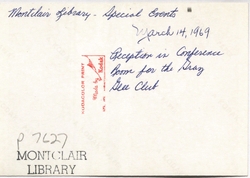 Montclair Library - Special Events
March 14, 1969
Reception in Conference
Room for the Gray
Glee Club
KODACOLOR PRINT
Made by Kodak
P 7627
MONTCLAIR
LIBRARY